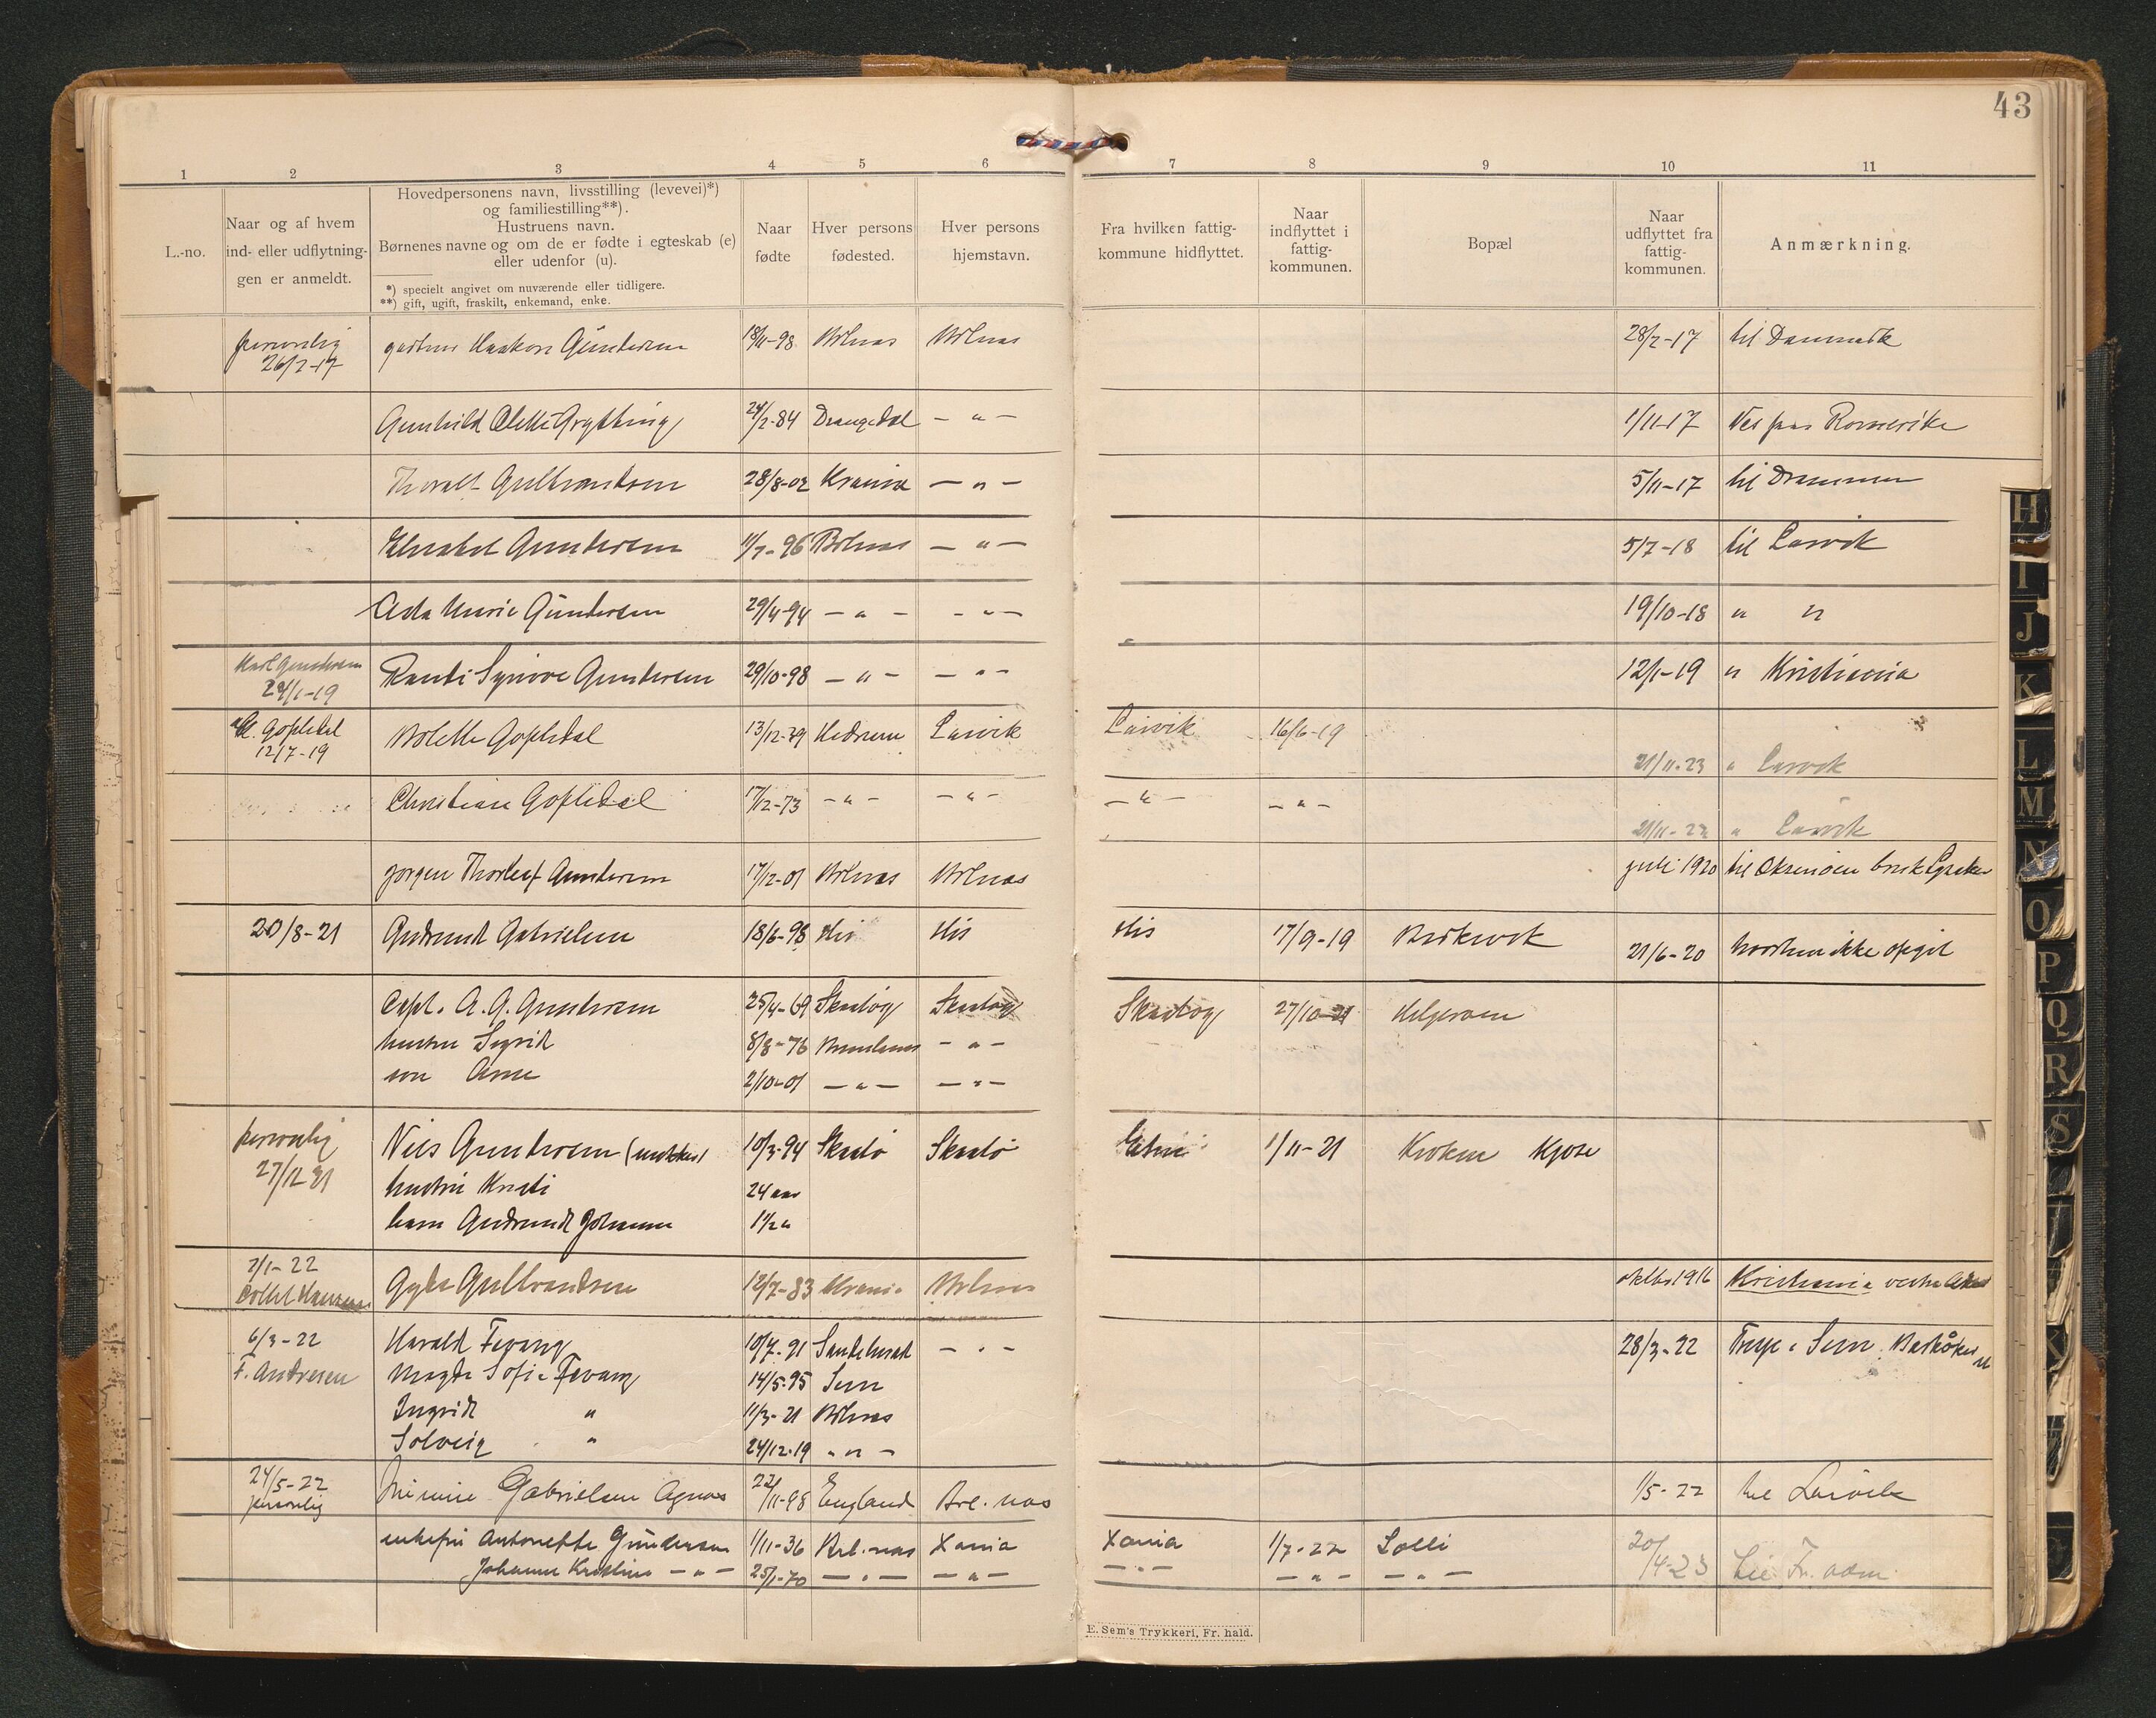 43
1 2 3 4 5 6 7 8 9 10 11
L.-no.
Naar og af hvem
ind- eller udflytnin-
gen er anmeldt.
Hovedpersonens navn, livsstilling (levevei)*)
og familiestilling**).
Hustruens navn.
Børnenes navne og om de er fødte i egteskab (e)
eller udenfor (u).
*) specielt angivet om nuværende eller tidligere.
**) gift, ugift, fraskilt, enkemand, enke.
Naar
fødte
Hver persons
fødested.
Hver persons
hjemstavn.
Fra hvilken fattig-
kommune hidflyttet.
Naar
indflyttet i
fattig-
kommunen.
Bopæl
Naar
udflyttet fra
fattig-
kommunen.
Anmærkning.
personlig Haakon Gundersen 18/11-98 Brlnæs Brlnæs 28/2-17 til Danmark
26/2-17
Gunhild Olette 24/2-84 Drangedal — " — 1/11-17 Romerike
Thoralf Gulbrandsen 28/8-02 Krania — " — 5/11-17 til Drammen
Elisabet Gundersen 11/7-96 Brlnæs — " — 5/7-18 til Larvik
Asta Marie Gundersen 29/4-94 — " — — " — 19/10-18 " "
Karl Gundersen Randi Synøve Gundersen 29/10-98 — " — — " — 12/1-19 " Kristiania
24/1-19
Gopledal Bolette Gopledal 13/12-79 Hedrum Larvik Larvik 16/6-19
12/7-19 21/11-23 " Larvik
Christian Gopledal 17/12-73 — " — — " — — " — — " —
" Larvik
Jørgen Thorleif Gundersen 17/12-01 Brlnæs Brlnæs juli 1920 til bruk Lysaker
20/8-21 Gudrund Gabrielsen 18/6-98 His His His 17/9-19 21/6-20 hvorhen ikke opgit
Capt. A. G. Gundersen 25/4-69 Skaatøy Skaatøy Skaatøy 27/10-21 Helgeroen
hustru Sigrid 8/8-76 — " —
søn Arne 2/10-01 — " — — " —
personlig Niels Gundersen 10/3-94 Skaatø Skaatø 1/11-21 Kroken Kjose
27/12 21
hustru Kristi 24 aar
barn Gudrund Johanne 1½ "
7/1-22 Gyda Gulbrandsen 12/7-83 Krania Brlnæs oktbr 1916 Kristiania vestre
6/3-22 Harald Fevang 10/7-91 Sandeherad — " — 28/3-22 i Sem.
F. Andresen Magda Sofie Fevang 14/5-95 Sem
Ingrid " 11/3-21 Brlnæs
Solveig " 24/12-19 " " —
24/5-22 Gabrielsen Agnes 22/11-98 England Brl.næs 1/5-22 til Larvik
personlig
enkefru Antonette Gundersen 1/11-36 Brl.næs Xania Xania 1/7-22 Solli 20/4-23 til Fr.værn
Johanne Kristine — " — 25/1-70 — " — — " — — " — — " — — " —
E. Sem's Trykkeri, Fr. hald.
H
I
J
K
L
M
N
O
P
Q
R
S